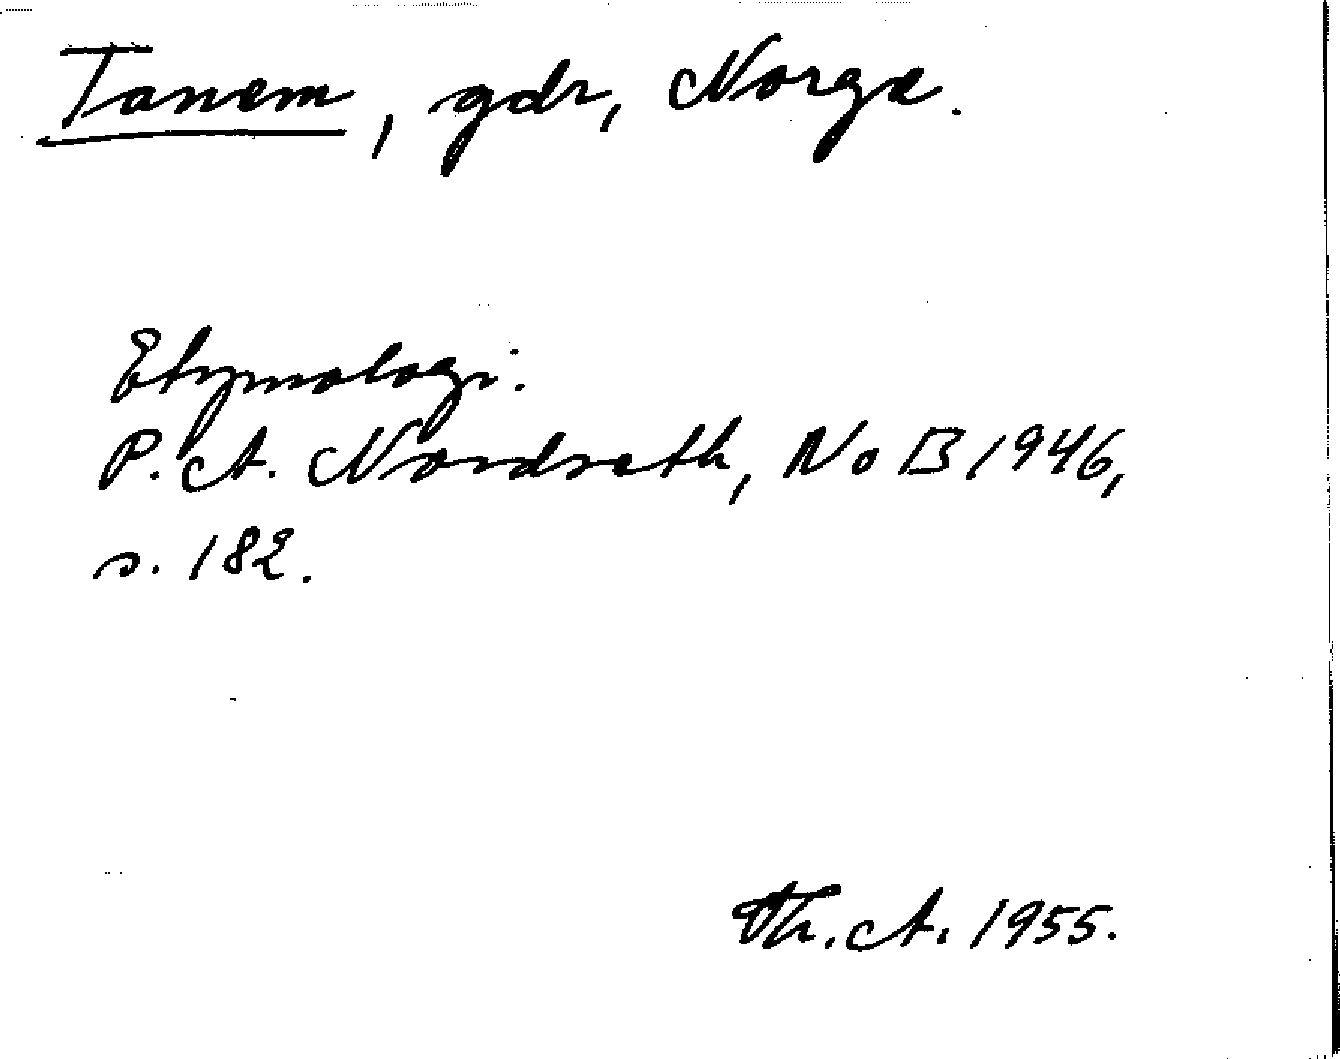 Tanem, gdr, Norge.
Etymologi.
P. A. Nordseth, NoB 1946,
s. 182.
Th. A. 1955.